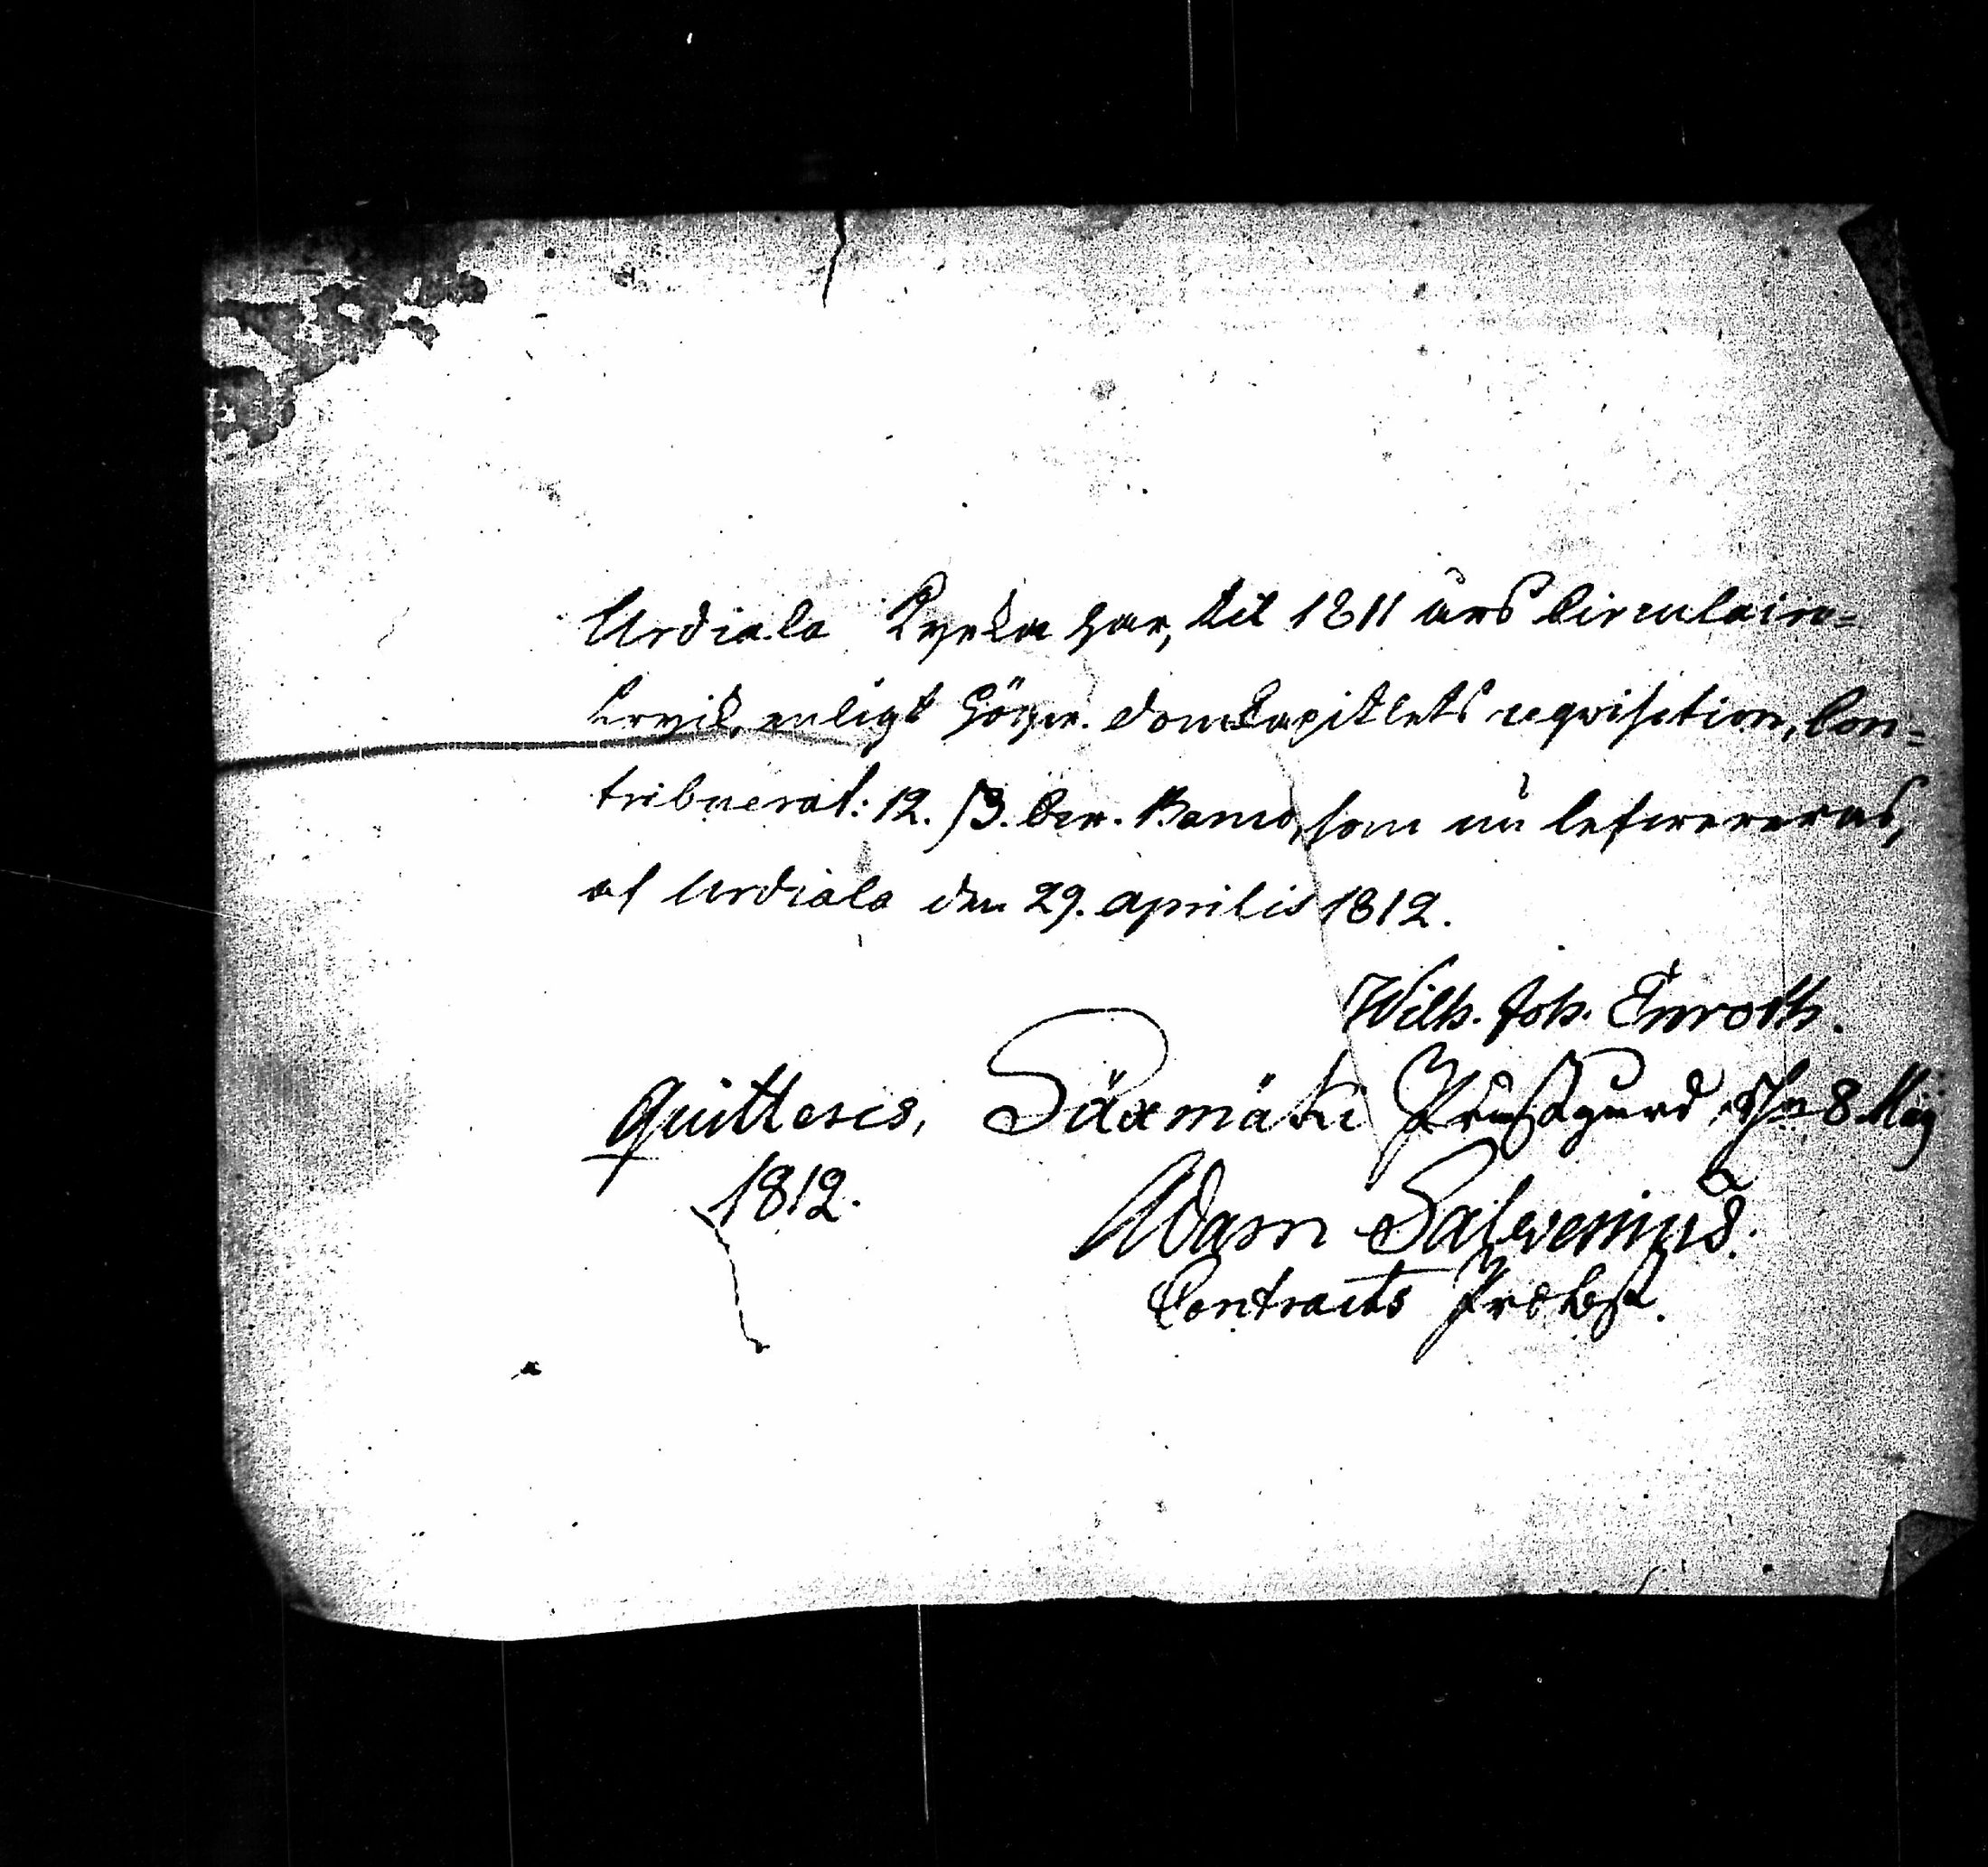 Urdiala Kyrka har, til 1811 års Circulaire-
tryck, enligt Högw. Domkapitlets reqvisition, con-
tribuerat: 12. ß. Banco, som nu lefwereras,
af Urdiala den 29. Aprilis 1812.
Wilh. Joh. Enroth.
Quitteres, Sääxmäki Prästgård, 8 Maj
1812.
Adam Salvenius.
Contracts Probst.